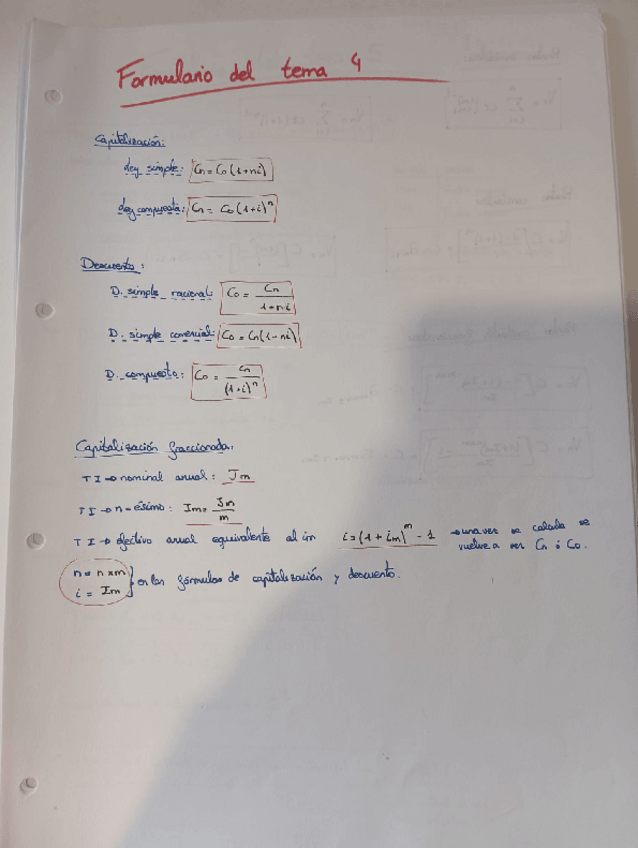 Formulario del tema 4
Capitalización:
Ley simple: Cn = Co (1+ni)
Ley compuesta: Cn = Co (1+i)^n
Descuento:
D. simple racional: Co = Cn / 1+ni
D. simple comercial: Co = Cn (1-ni)
D. compuesto: Co = Cn / (1+i)^n
Capitalización fraccionada:
TI → nominal anual: Jm
TI → n-ésimo: Im = Jm / m
TI → efectivo anual equivalente al im i = (1 + im)^m - 1 → una vez se calcula se
vuelve a ver Cn ó Co.
n = n × m
i = Im } en las fórmulas de capitalización y descuento.